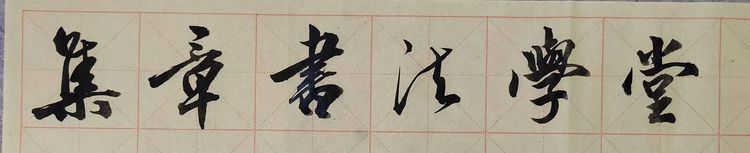 集章書法學堂